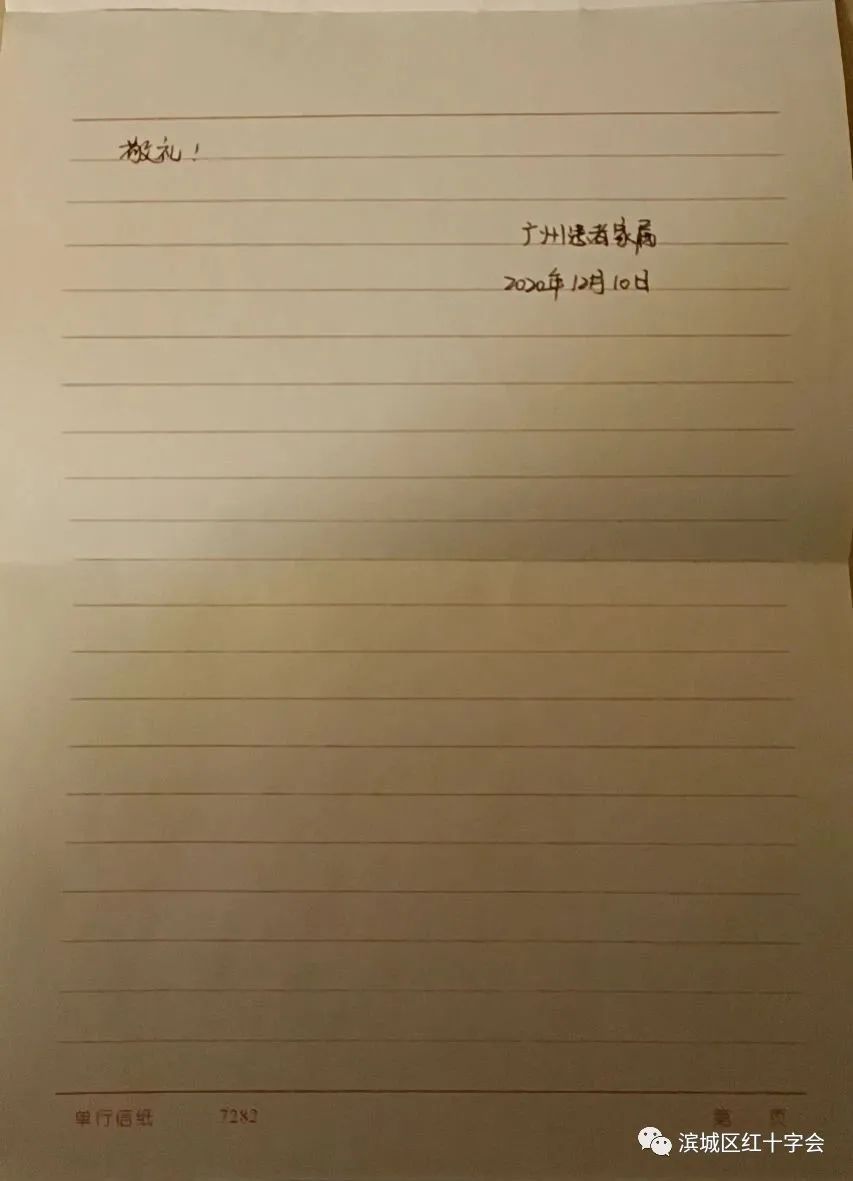 敬礼！
广州患者家属
2020年12月10日
单行信纸 7282 第 页
滨城区红十字会